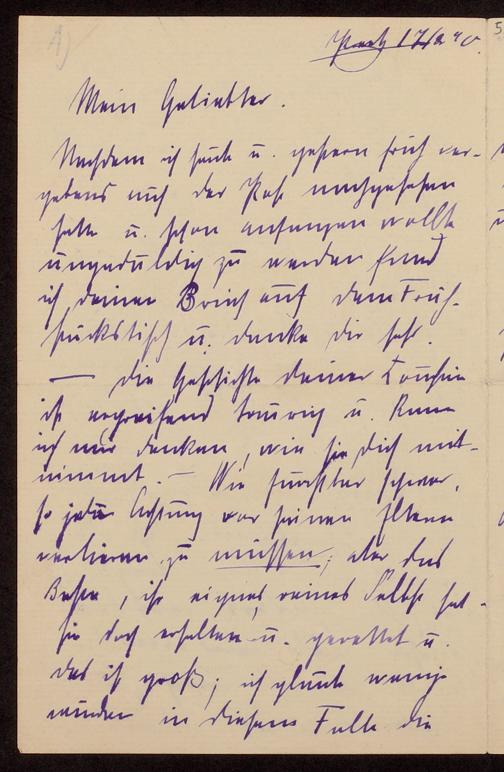 17/2 90.
Mein Geliebter.
Nachdem ich heute u. gestern früh ver-
gebens auf der Post nachgesehen
hatte u. schon anfangen wollte
ungeduldig zu werden fand
ich deinen Brief auf dem Früh-
stückstisch u. danke dir sehr.
— die Geschichte deiner Cousine
ist ergreifend traurig u. kann
ich mir denken, wie sie dich mit-
nimmt. — Wie furchtbar schwer,
so jede Achtung vor seinen Eltern
verlieren zu müssen; aber das
Beste, ihr eignes, reines Selbst hat
sie doch erhalten u. gerettet u.
das ist groß; ich glaube wenige
würden in diesem Falle die